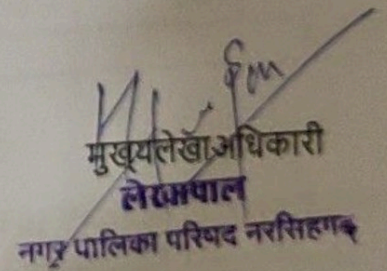 मुख्यलेखाअधिकारी
लेखापाल
नगर पालिका परिषद नरसिंहगढ़